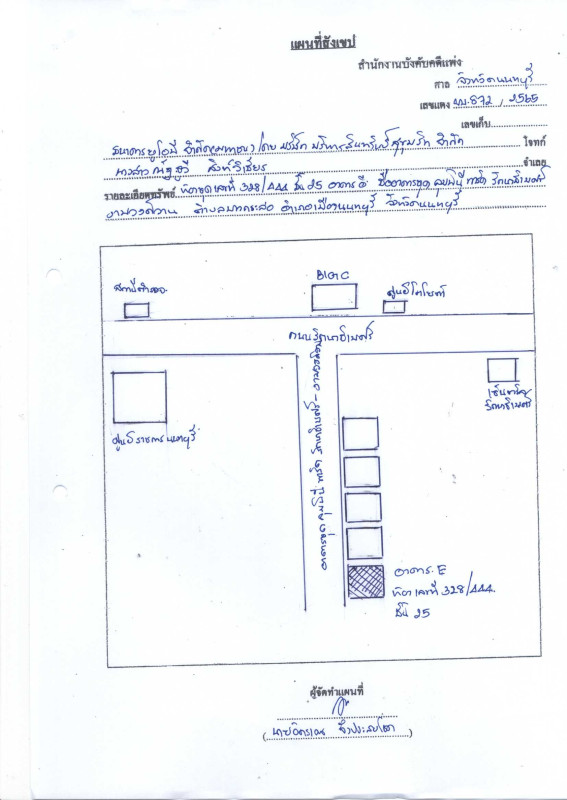 แผนที่สังเขป
สำนักงานบังคับคดีแพ่ง
ศาล จังหวัดนนทบุรี
เลขแดง ผบ.872 / 2565
เลขเก็บ
ธนาคารยูโอบี จำกัด(มหาชน) / โดย บริษัท บริหารสินทรัพย์สุขุมวิท จำกัด โจทก์
นางสาว สิงห์วิเชียร จำเลย
รายละเอียดทรัพย์ ห้องชุดเลขที่ 328/444 ชั้น 25 อาคาร อี ชื่ออาคารชุด ศุภาลัย ปาร์ค รัตนาธิเบศร์
งามวงศ์วาน ตำบลบางกระสอ อำเภอเมืองนนทบุรี จังหวัดนนทบุรี
สถานีตำรวจ
BIG C
ศูนย์โตโยต้า
ถนนรัตนาธิเบศร์
ศูนย์ราชการนนทบุรี
เซ็นทรัล
รัตนาธิเบศร์
อาคาร E
ห้องเลขที่ 328/444
ชั้น 25
ผู้จัดทำแผนที่